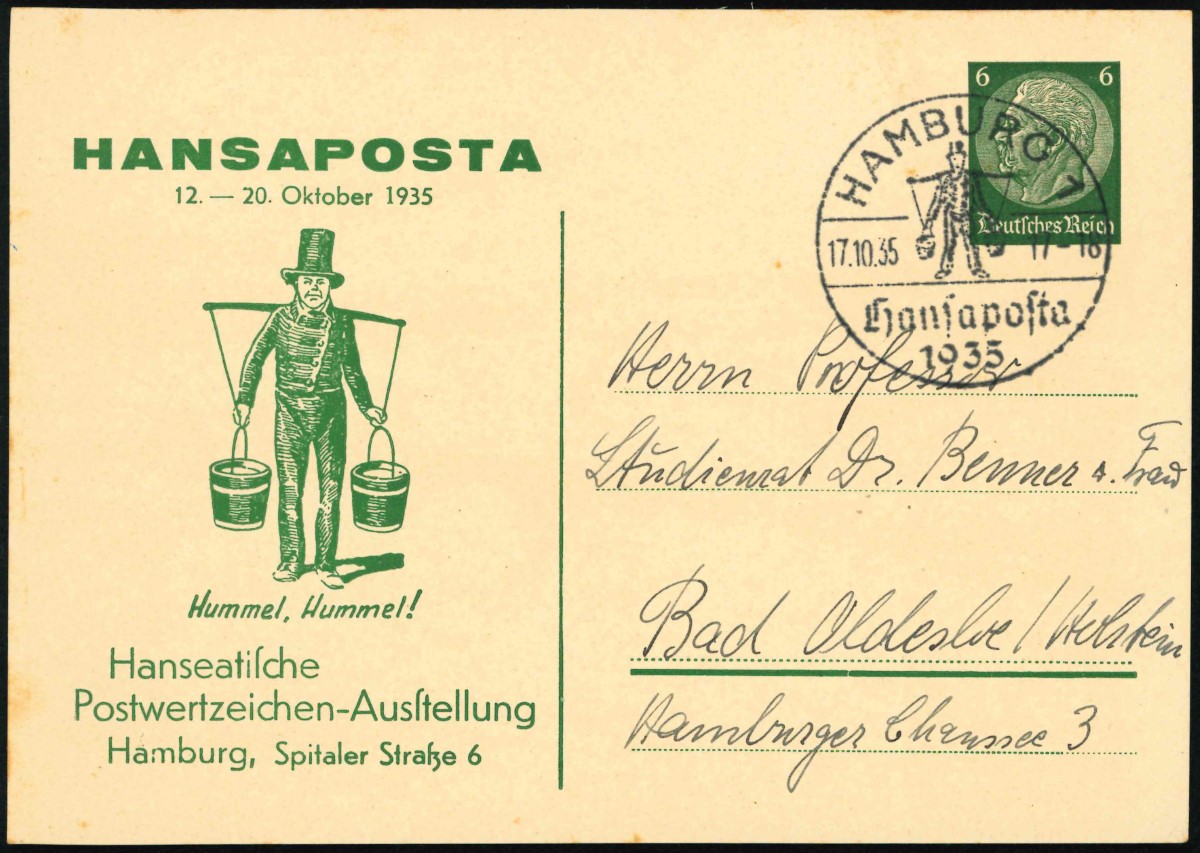 HANSAPOSTA
12. — 20. Oktober 1935
Hummel, Hummel!
Hanseatiſche
Postwertzeichen-Ausſtellung
Hamburg, Spitaler Straße 6
6 6
Deutſches Reich
HAMBURG 1
17.10.35 17-18
Hanſapoſta
1935
Herrn Professor
Studienrat Dr. Benner u. Frau
Bad Oldesloe / Holstein
Hamburger Chaussee 3